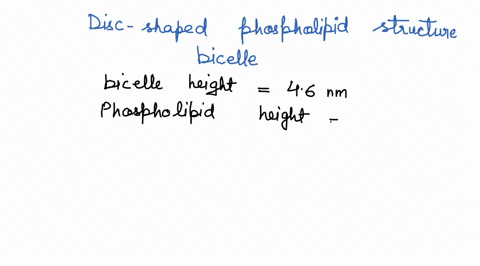 Disc-shaped phospholipid structure
bicelle
bicelle height = 4.6 nm
Phospholipid height =